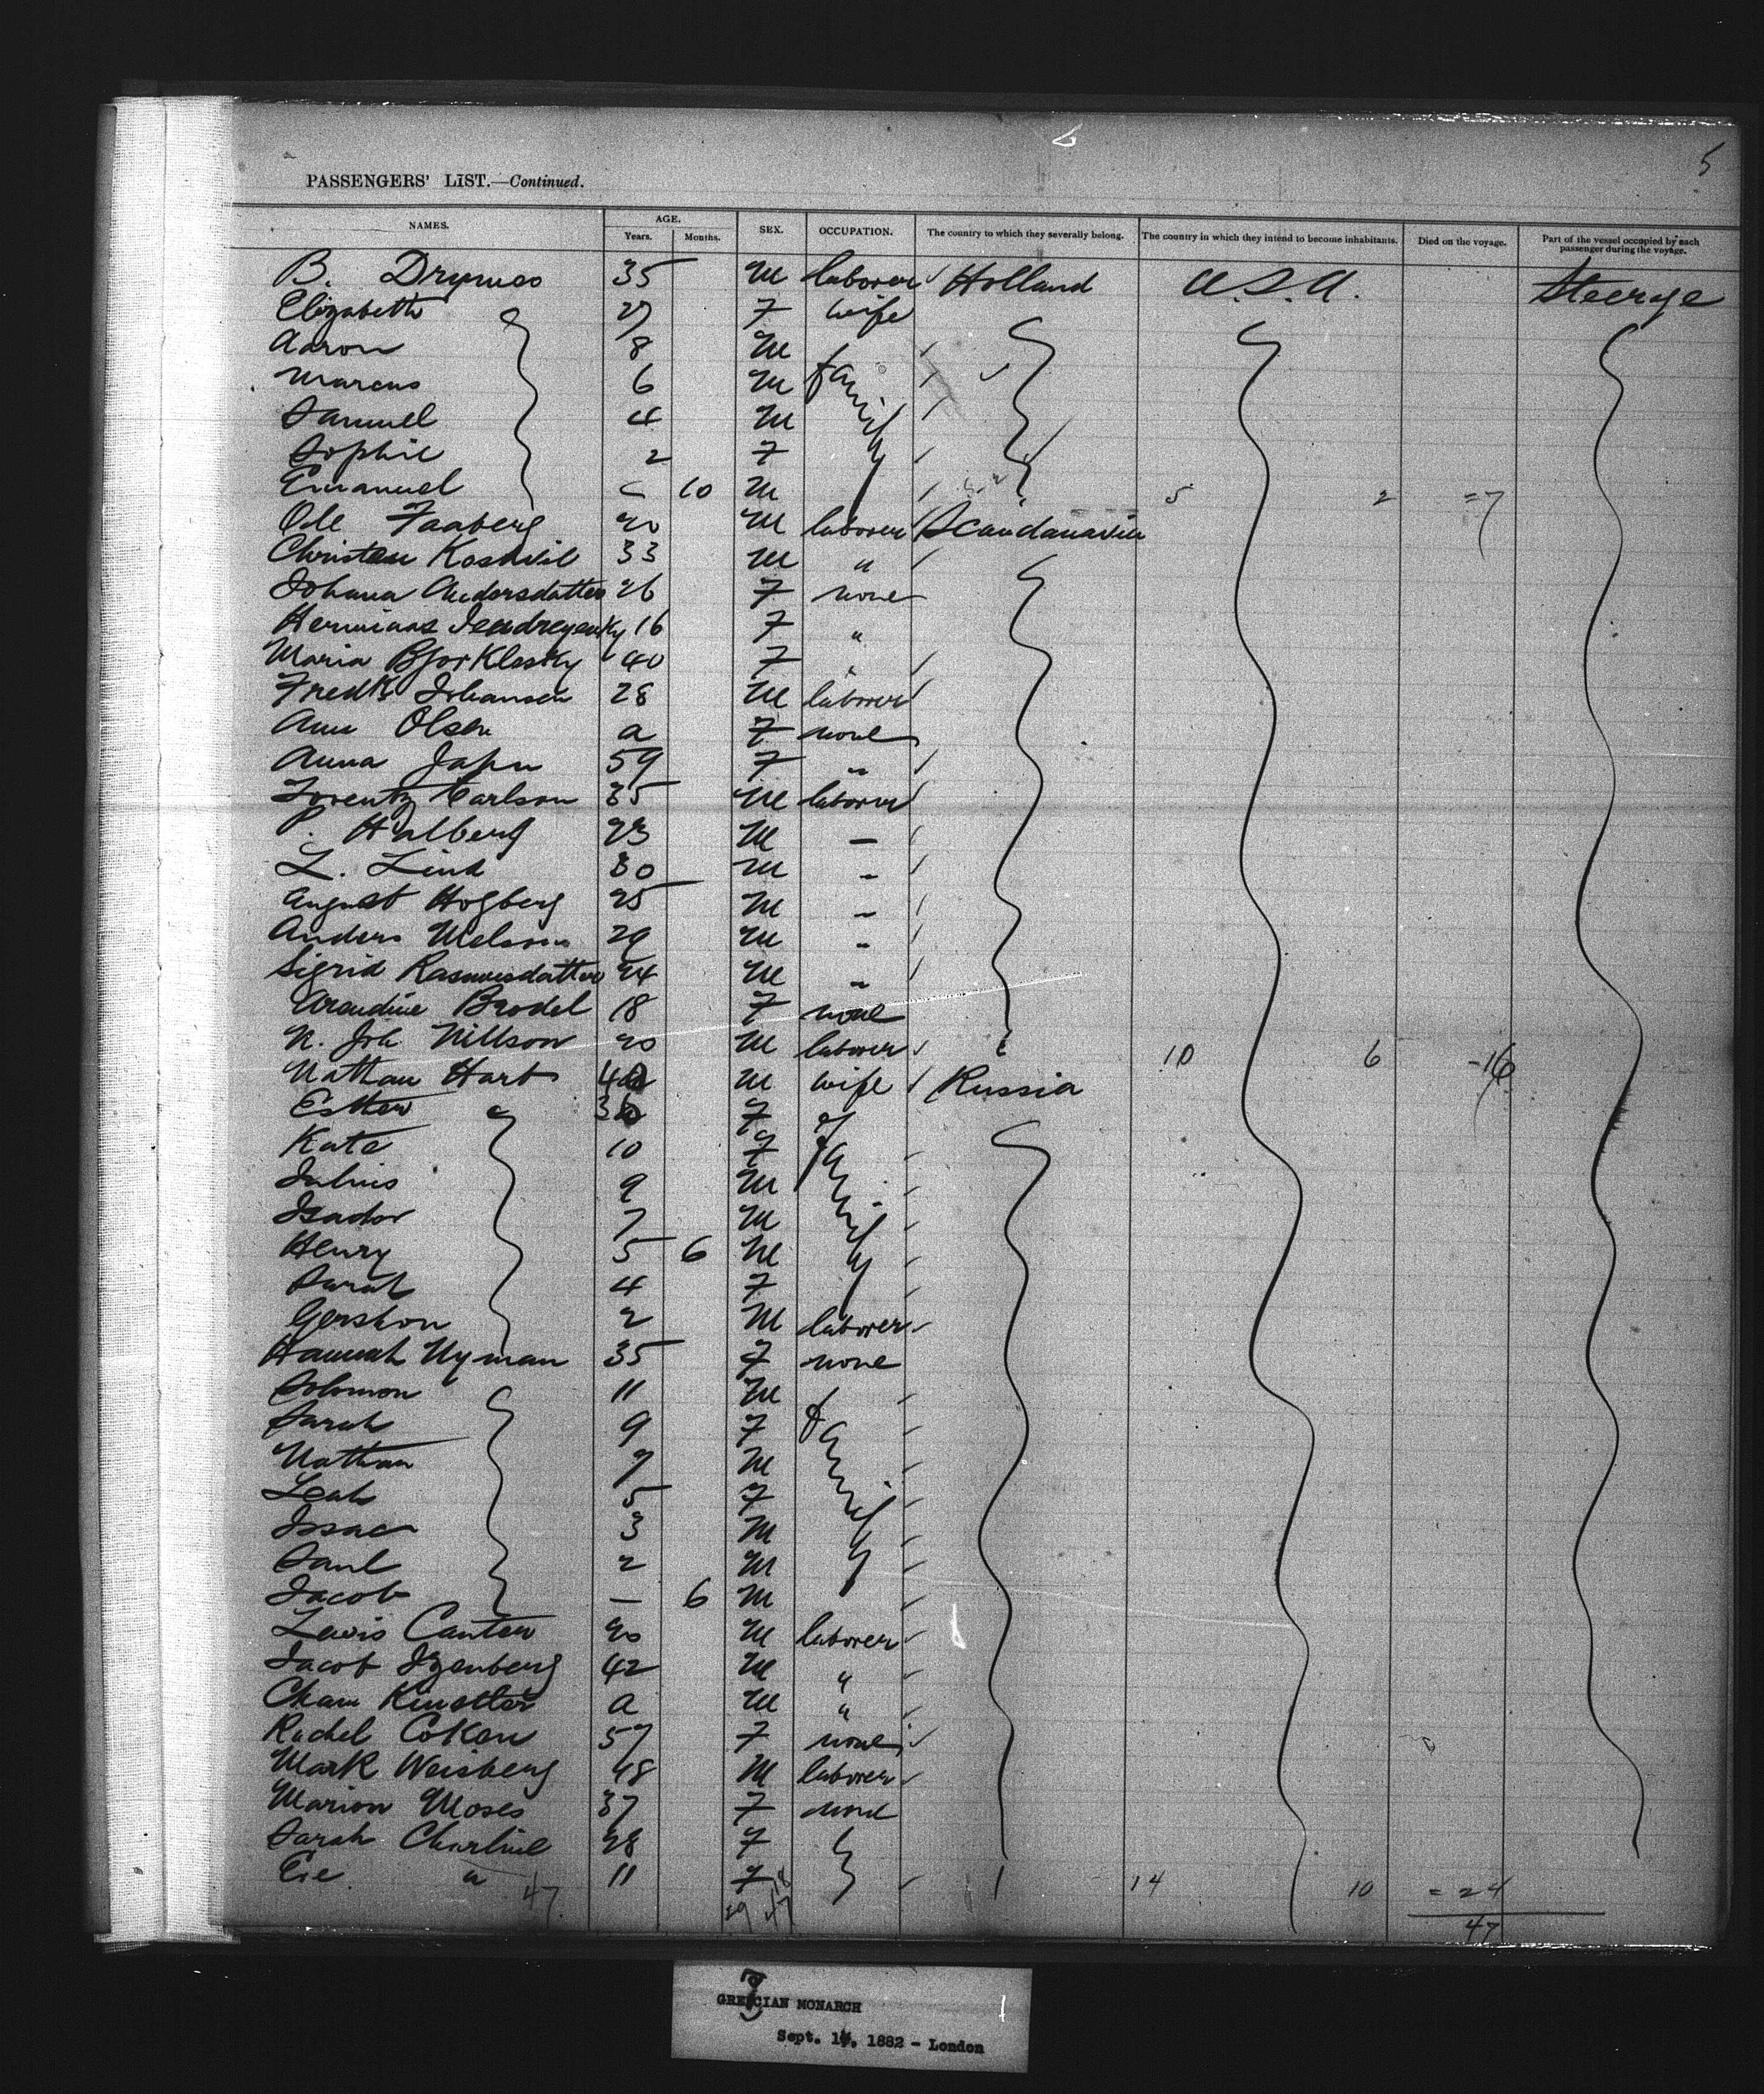 6
5
PASSENGERS' LIST.—Continued.
NAMES. AGE. Years. Months. SEX. OCCUPATION. The country to which they severally belong. The country in which they intend to become inhabitants. Died on the voyage. Part of the vessel occupied by each passenger during the voyage.
B. 35 M laborer Holland U.S.A. Steerage
Elizabeth 27 F wife
Aaron 8 M family
Marcus 6 M
Samuel 4 M
Sophie 2 F
Emanuel 10 M 5 2 =7
Ole Faaberg 20 M laborer Scandanavia
Christen 33 M "
Johana Andersdatter 26 F none
16 F "
Maria 40 F "
Fredk Johansen 28 M laborer
Ann Olsen a F none
Anna 59 F "
Lorentz Carlson 35 M laborer
P. Halberg 23 M –
L. Lind 30 M –
August Hogberg 25 M –
Anders Nelson 29 M –
Sigrid Rasmusdatter 24 M –
Brodel 18 F none
N. Joh Nillson 20 M laborer 10 6 -16
Nathan Hart M wife Russia
Esther F of
Kate 10 F family
Julius 9 M
Isador 7 M
Henry 5 6 M
Sarah 4 F
Gershon 2 M laborer
Hannah Nyman 35 F none
Solomon 11 M family
Sarah 9 F
Nathan 7 M
Leah 5 F
Issac 3 M
Saul 2 M
Jacob – 6 M
Lewis Canter 20 M laborer
Jacob Izenberg 42 M "
Cham a M "
Rachel Coken 57 F none
Mark Weisberg 48 M laborer
Marion Moses 37 F none
Sarah 28 F
11 F 14 10 = 24
47 18 29 47 47
GRECIAN MONARCH
Sept. 14, 1882 - London